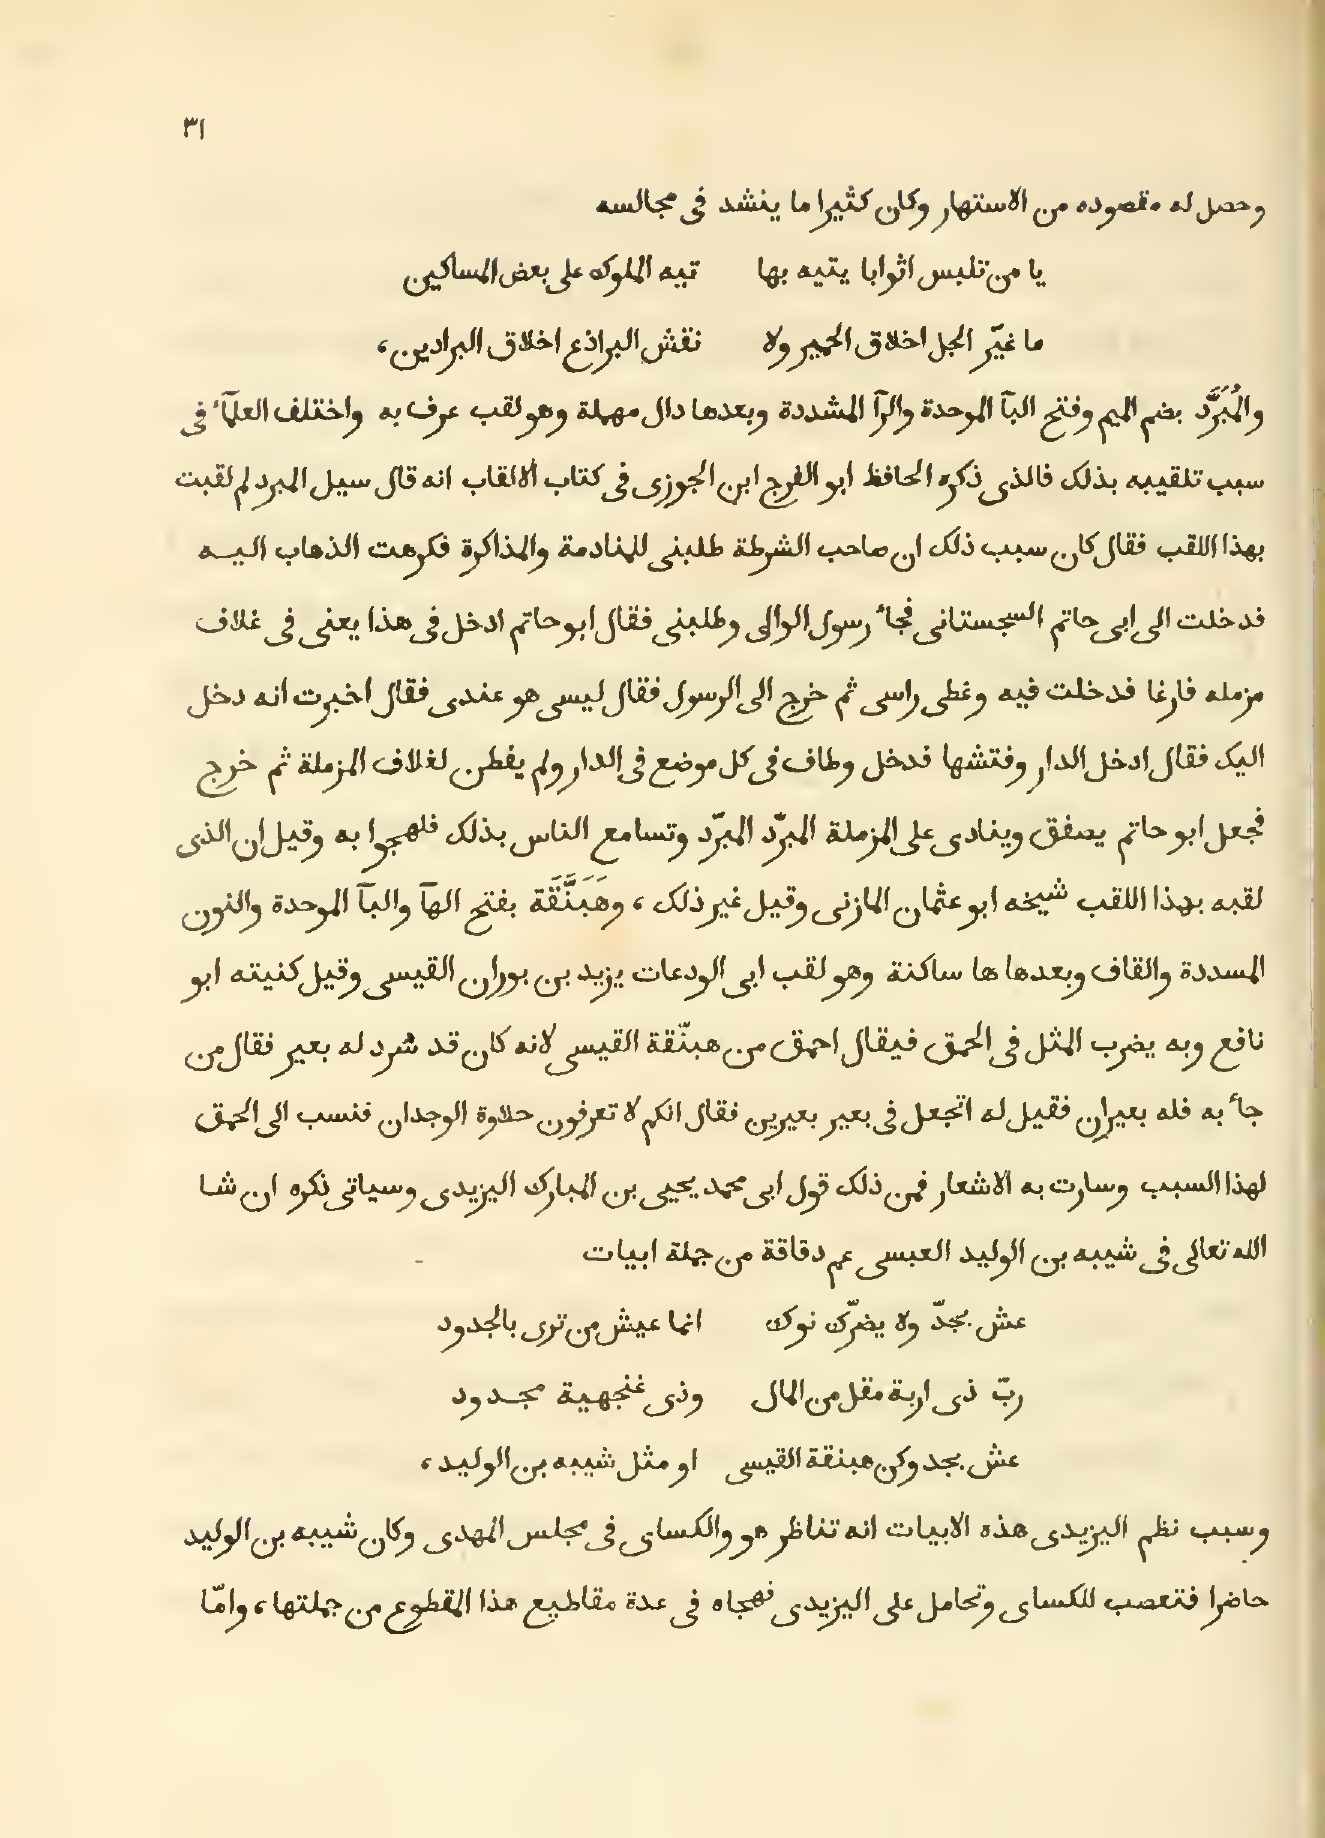 ٣١
وحصل له مقصوده من الاستهار وكان كثيرا ما ينشد فى مجالسه
يا من تلبس اثوابا يتيه بها تيه الملوك على بعض المساكين
ما غيّر الجل اخلاق الحمير ولا نقش البراذع اخلاق البرادين،
والمُبَرَّد بضم الميم وفتح البآ الموحدة والرآ المشددة وبعدها دال مهملة وهو لقب عرف به واختلف العلمآء فى
سبب تلقيبه بذلك فالذى ذكره الحافظ ابو الفرج ابن الجوزى فى كتاب الالقاب انه قال سيل المبرد لم لقبت
بهذا اللقب فقال كان سبب ذلك ان صاحب الشرطة طلبنى للمنادمة والمذاكرة فكرهت الذهاب اليه
فدخلت الى ابى حاتم السجستانى فجاء رسول الوالى وطلبنى فقال ابو حاتم ادخل فى هذا يعنى فى غلاف
مزمله فارغا فدخلت فيه وغطى راسى ثم خرج الى الرسول فقال ليس هو عندى فقال اخبرت انه دخل
اليك فقال ادخل الدار وفتشها فدخل وطاف فى كل موضع فى الدار ولم يفطن لغلاف المزملة ثم خرج
فجعل ابو حاتم يصفق وينادى على المزملة المبرّد المبرّد وتسامع الناس بذلك فلهجوا به وقيل ان الذى
لقبه بهذا اللقب شيخه ابو عثمان المازنى وقيل غير ذلك، وهَبَنَّقَة بفتح الهآ والبآ الموحدة والنون
المسددة والقاف وبعدها ها ساكنة وهو لقب ابى الودعات يزيد بن بوران القيسى وقيل كنيته ابو
نافع وبه يضرب المثل فى الحمق فيقال احمق من هبنّقة القيسى لانه كان قد شرد له بعير فقال من
جاء به فله بعيران فقيل له اتجعل فى بعير بعيرين فقال انكم لا تعرفون حلاوة الوجدان فنسب الى الحمق
لهذا السبب وسارت به الاشعار فمن ذلك قول ابى محمد يحيى بن المبارك اليزيدى وسياتى ذكره ان شا
الله تعالى فى شيبه بن الوليد العبسى عم دقاقة من جملة ابيات
عش بجدّ ولا يضرّك نوك انما عيش من ترى بالجدود
ربّ ذى اربة مقل من المال وذى غنجهية مجدود
عش بجد وكن هبنقة القيسى او مثل شيبه بن الوليد،
وسبب نظم اليزيدى هذه الابيات انه تناظر هو والكساى فى مجلس المهدى وكان شيبه بن الوليد
حاضرا فتعصب للكساى وتحامل على اليزيدى فهجاه فى عدة مقاطيع هذا المقطوع من جملتها، وامّا